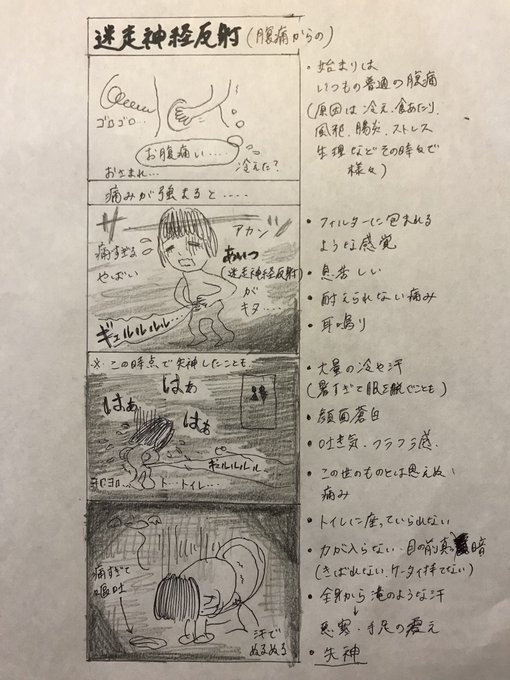 迷走神経反射(腹痛からの)
ゴロゴロ…
お腹痛い…
冷えた?
おさまれ…
痛みが強まると……
痛すぎる
やばい
アカン
あいつ
(迷走神経反射)
が
キタ…
ギュルルルル…
※この時点で失神したことも
はぁ
はぁ
はぁ
ギュルルルル
ヨロヨロ…
ト…トイレ…
痛すぎて
嘔吐
汗で
ぬるぬる
・始まりは
いつもの普通の腹痛
(原因は冷え、食あたり、
風邪、腸炎、ストレス
生理などその時々で
様々)
・フィルターに包まれる
ような感覚
・息苦しい
・耐えられない痛み
・耳鳴り
・大量の冷や汗
(暑すぎて服を脱ぐことも)
・顔面蒼白
・吐き気、フラフラ感
・この世のものとは思えぬ
痛み
・トイレに座っていられない
・力が入らない・目の前真暗
(きばれない、ケータイ持てない)
・全身から滝のような汗
↓
悪寒・手足の震え
・失神